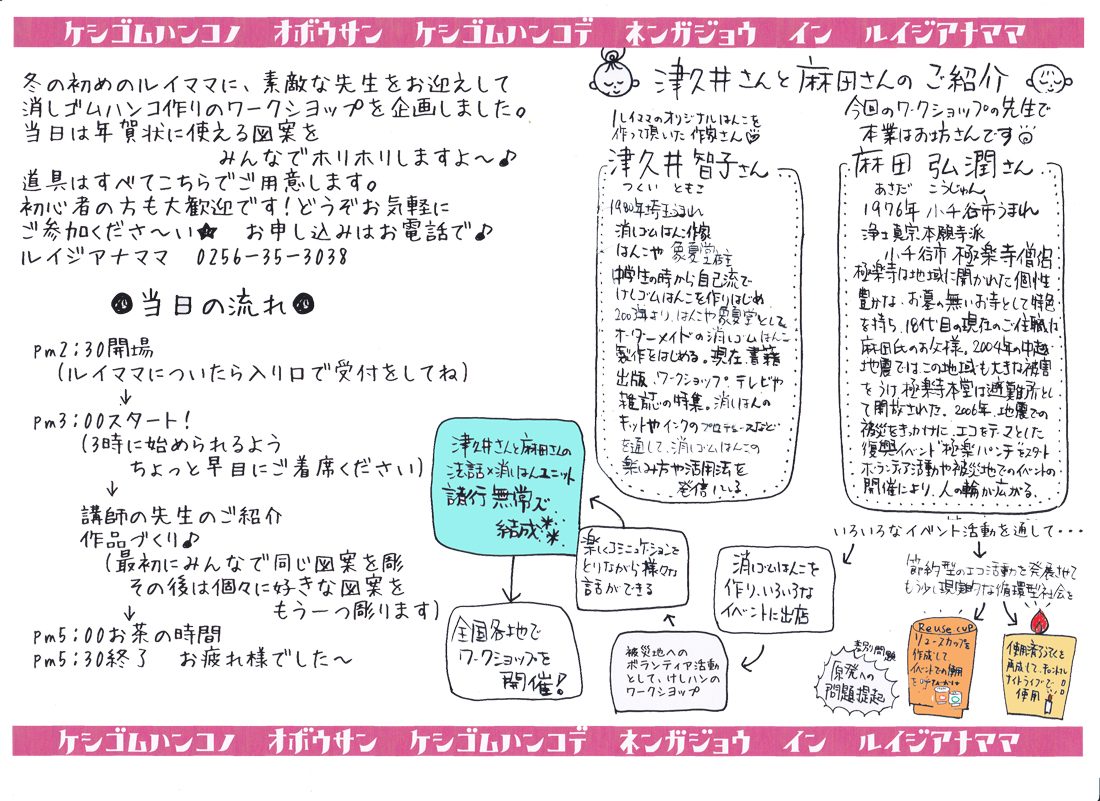 ケシゴムハンコノ オボウサン ケシゴムハンコデ ネンガジョウ イン ルイジアナママ
冬の初めのルイママに、素敵な先生をお迎えして
消しゴムハンコ作りのワークショップを企画しました。
当日は年賀状に使える図案を
みんなでホリホリしますよ〜♪
道具はすべてこちらでご用意します。
初心者の方も大歓迎です!どうぞお気軽に
ご参加くださ〜い★ お申し込みはお電話で♪
ルイジアナママ 0256-35-3038
当日の流れ
pm2:30開場
(ルイママについたら入り口で受付をしてね)
↓
pm3:00スタート!
(3時に始められるよう
ちょっと早目にご着席ください)
↓
講師の先生のご紹介
作品づくり♪
(最初にみんなで同じ図案を彫
その後は個々に好きな図案を
もう一つ彫ります)
↓
pm5:00お茶の時間
pm5:30終了 お疲れ様でした〜
津久井さんと麻田さんのご紹介
ルイママのオリジナルはんこを
作って頂いた作家さん
津久井智子さん
つくい ともこ
1980年埼玉うまれ
消しゴムはんこ作家
はんこや 象夏堂店主
中学生の時から自己流で
けしゴムはんこを作りはじめ
2003年より、はんこや象夏堂として
オーダーメイドの消しゴムはんこ
製作をはじめる。現在、書籍
出版、ワークショップ、テレビや
雑誌の特集。消しはんの
キットやインクのプロデュースなど
を通して、消しゴムはんこの
楽しみ方や活用法を
発信している
今回のワークショップの先生で
本業はお坊さんです
麻田 弘潤さん
あさだ こうじゅん
1976年 小千谷市うまれ
浄土真宗本願寺派
小千谷市 極楽寺僧侶
極楽寺は地域に開かれた個性
豊かな、お墓の無いお寺として特色
を持ち、18代目の現在のご住職は
麻田氏のお父様。2004年の中越
地震ではこの地域も大きな被害
をうけ極楽寺本堂は避難所とし
て開放された。2006年、地震での
被災をきっかけに、エコをテーマとした
復興イベント「極楽パンチ」をスタート
ボランティア活動や被災地でのイベントの
開催により、人の輪が広がる。
いろいろなイベント活動を通して・・・
節約型のエコ活動を発展させて
もう少し現実的な循環型社会を
消しゴムはんこを
作り、いろいろな
イベントに出店
被災地への
ボランティア活動
として、けしハンの
ワークショップ
楽しくコミュニケーションを
とりながら様々な
話ができる
津久井さんと麻田さんの
法話×消しはんユニット
諸行無常で
結成
全国各地で
ワークショップを
開催!
原発への
問題提起
Reuse cup
リユースカップを
作成して
イベントでの使用
を呼びかけ
使用済ろうそくを
再成して、キャンドル
ナイトライブで
使用
ケシゴムハンコノ オボウサン ケシゴムハンコデ ネンガジョウ イン ルイジアナママ